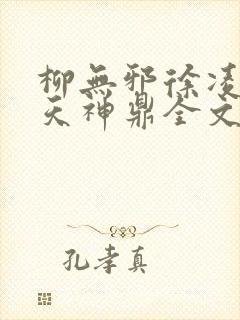 柳無邪徐凌
天神鼎全文
孔孝真